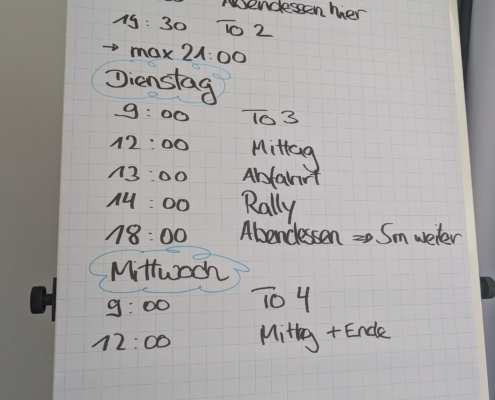 Abendessen hier
19:30 To 2
→ max 21:00
Dienstag
9:00 To 3
12:00 Mittag
13:00 Abfahrt
14:00 Rally
18:00 Abendessen ⇒ 5m weiter
Mittwoch
9:00 To 4
12:00 Mittag + Ende